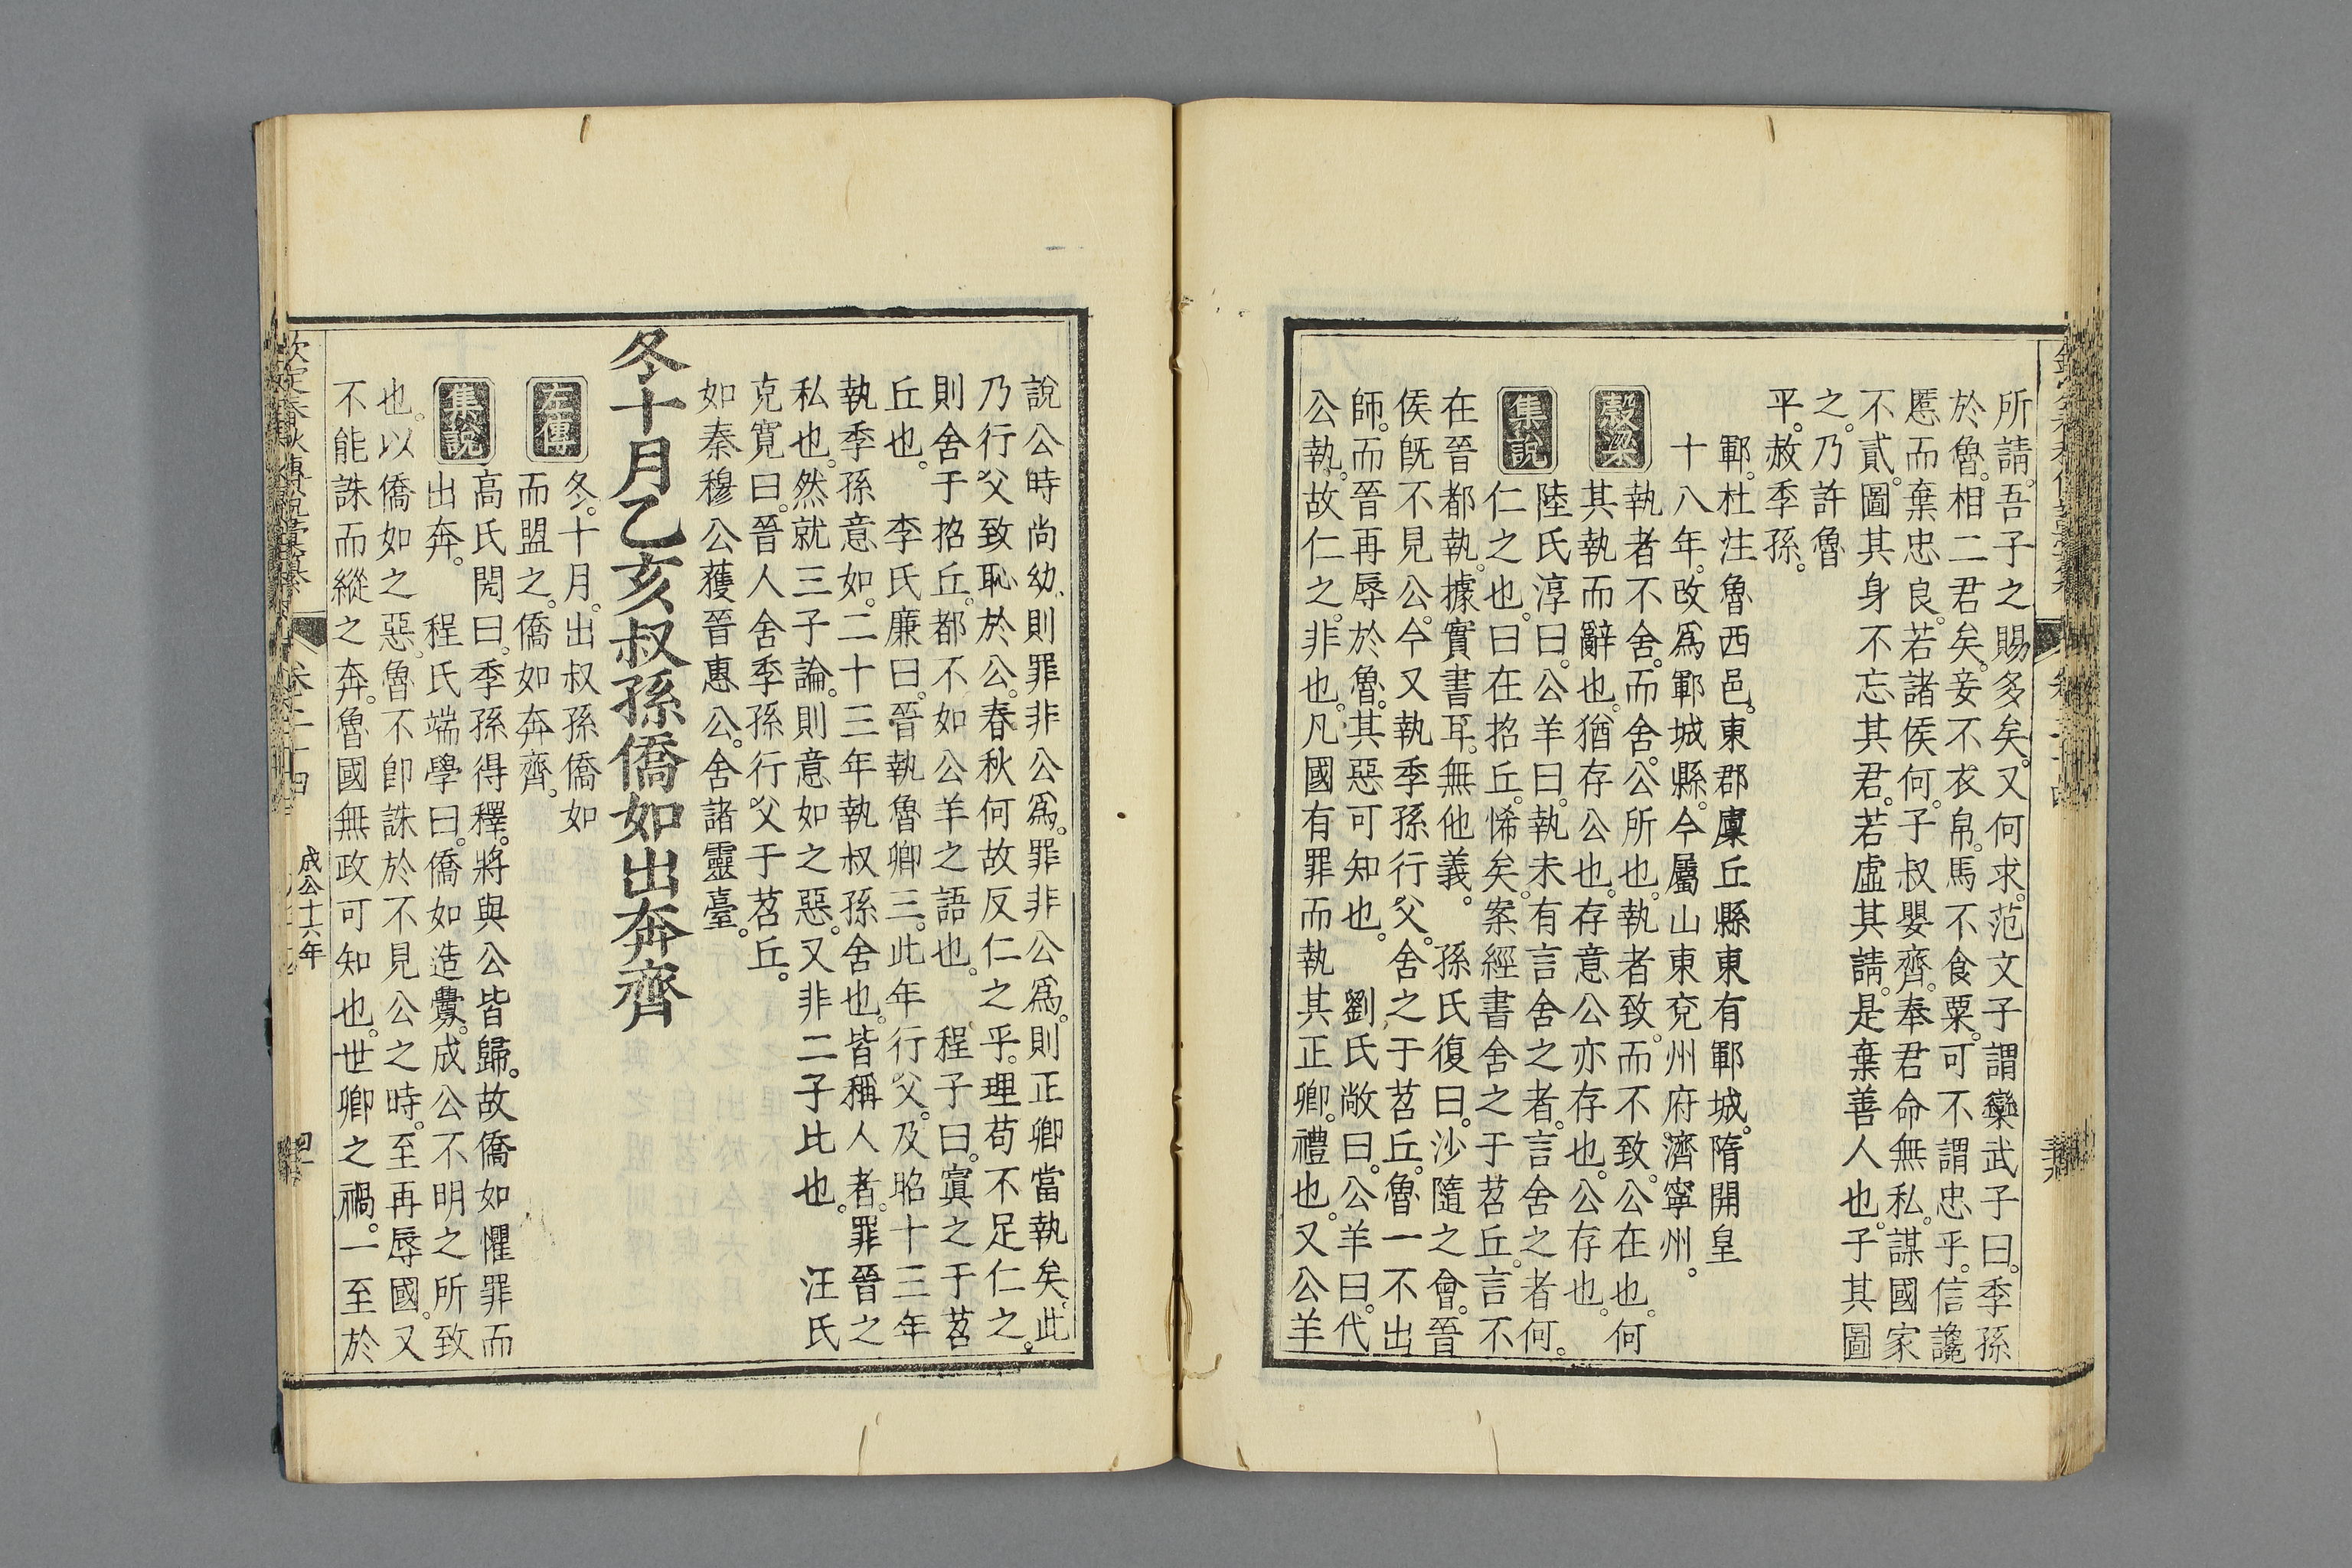 所請吾子之賜多矣又何求范文子謂欒武子曰季孫
於魯相二君矣妾不衣帛馬不食粟可不謂忠乎信讒
慝而棄忠良若諸侯何子叔嬰齊奉君命無私謀國家
不貳圖其身不忘其君若虛其請是棄善人也子其圖
之乃許魯
平赦季孫
鄆杜注魯西邑東郡廩丘縣東有鄆城隋開皇
十八年改爲鄆城縣今屬山東兗州府濟寧州
穀梁
執者不舍而舍公所也執者致而不致公在也何
其執而辭也猶存公也存意公亦存也公存也
集說
陸氏淳曰公羊曰執未有言舍之者言舍之者何
仁之也曰在招丘悕矣案經書舍之于苕丘言不
在晉都執據實書耳無他義 孫氏復曰沙隨之會晉
侯旣不見公今又執季孫行父舍之于苕丘魯一不出
師而晉再辱於魯其惡可知也 劉氏敞曰公羊曰代
公執故仁之非也凡國有罪而執其正卿禮也又公羊
說公時尚幼則罪非公爲罪非公爲則正卿當執矣此
乃行父致恥於公春秋何故反仁之乎理苟不足仁之
則舍于招丘都不如公羊之語也 程子曰寘之于苕
丘也 李氏廉曰晉執魯卿三此年行父及昭十三年
執季孫意如二十三年執叔孫舍也皆稱人者罪晉之
私也然就三子論則意如之惡又非二子比也 汪氏
克寬曰晉人舍季孫行父于苕丘
如秦穆公獲晉惠公舍諸靈臺
冬十月乙亥叔孫僑如出奔齊
左傳
冬十月出叔孫僑如
而盟之僑如奔齊
集說
高氏閌曰季孫得釋將與公皆歸故僑如懼罪而
出奔 程氏端學曰僑如造釁成公不明之所致
也以僑如之惡魯不卽誅於不見公之時至再辱國又
不能誅而縱之奔魯國無政可知也世卿之禍一至於
欽定春秋傳說彙纂 卷二十四 成公十六年